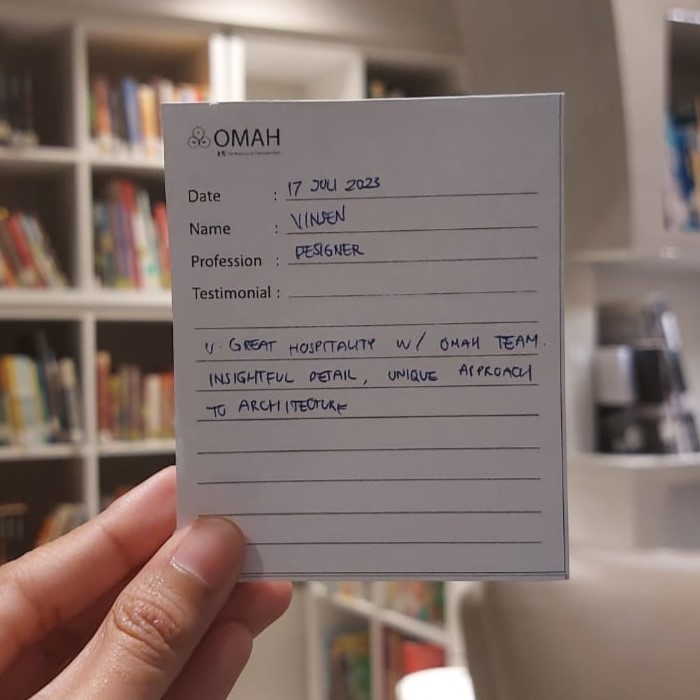 OMAH
Date : 17 JULI 2023
Name : VINSEN
Profession : DESIGNER
Testimonial :
V. GREAT HOSPITALITY W/ OMAH TEAM.
INSIGHTFUL DETAIL, UNIQUE APPROACH
TO ARCHITECTURE